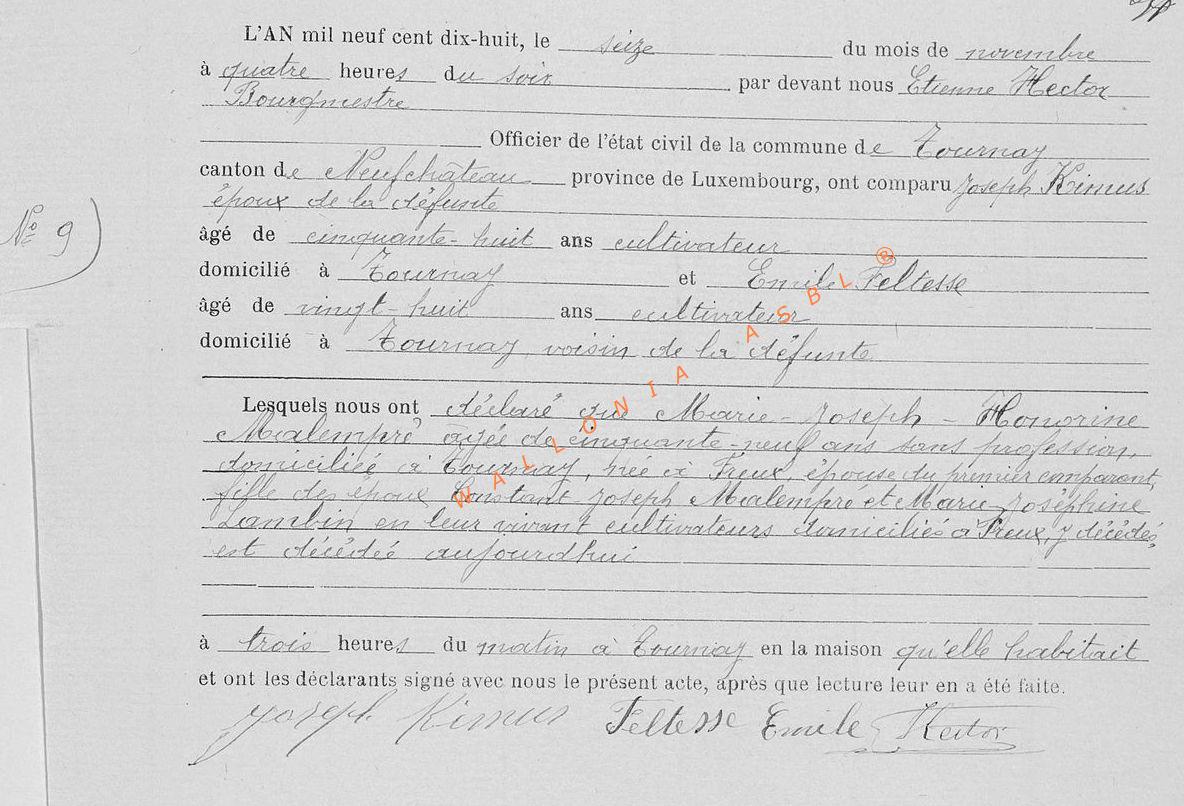 L'AN mil neuf cent dix-huit, le seize du mois de novembre
à quatre heures du soir par devant nous Etienne Hector
Bourgmestre
Officier de l'état civil de la commune de Tournay
canton de Neufchâteau province de Luxembourg, ont comparu Joseph Kimus
époux de la défunte
N° 9)
âgé de cinquante-huit ans cultivateur
domicilié à Tournay et Emile Feltesse
âgé de vingt-huit ans cultivateur
domicilié à Tournay, voisin de la défunte
Lesquels nous ont déclaré que Marie-Joseph-Honorine
Malempré âgée de cinquante-neuf ans sans profession,
domiciliée à Tournay, née à Freux, épouse du premier comparant,
fille des époux Constant Joseph Malempré et Marie-Joséphine
Lambin en leur vivant cultivateurs domiciliés à Freux, y décédés,
est décédée aujourd'hui
à trois heures du matin à Tournay en la maison qu'elle habitait
et ont les déclarants signé avec nous le présent acte, après que lecture leur en a été faite.
Joseph Kimus Feltesse Emile Hector
WALLONIA ASBL ®